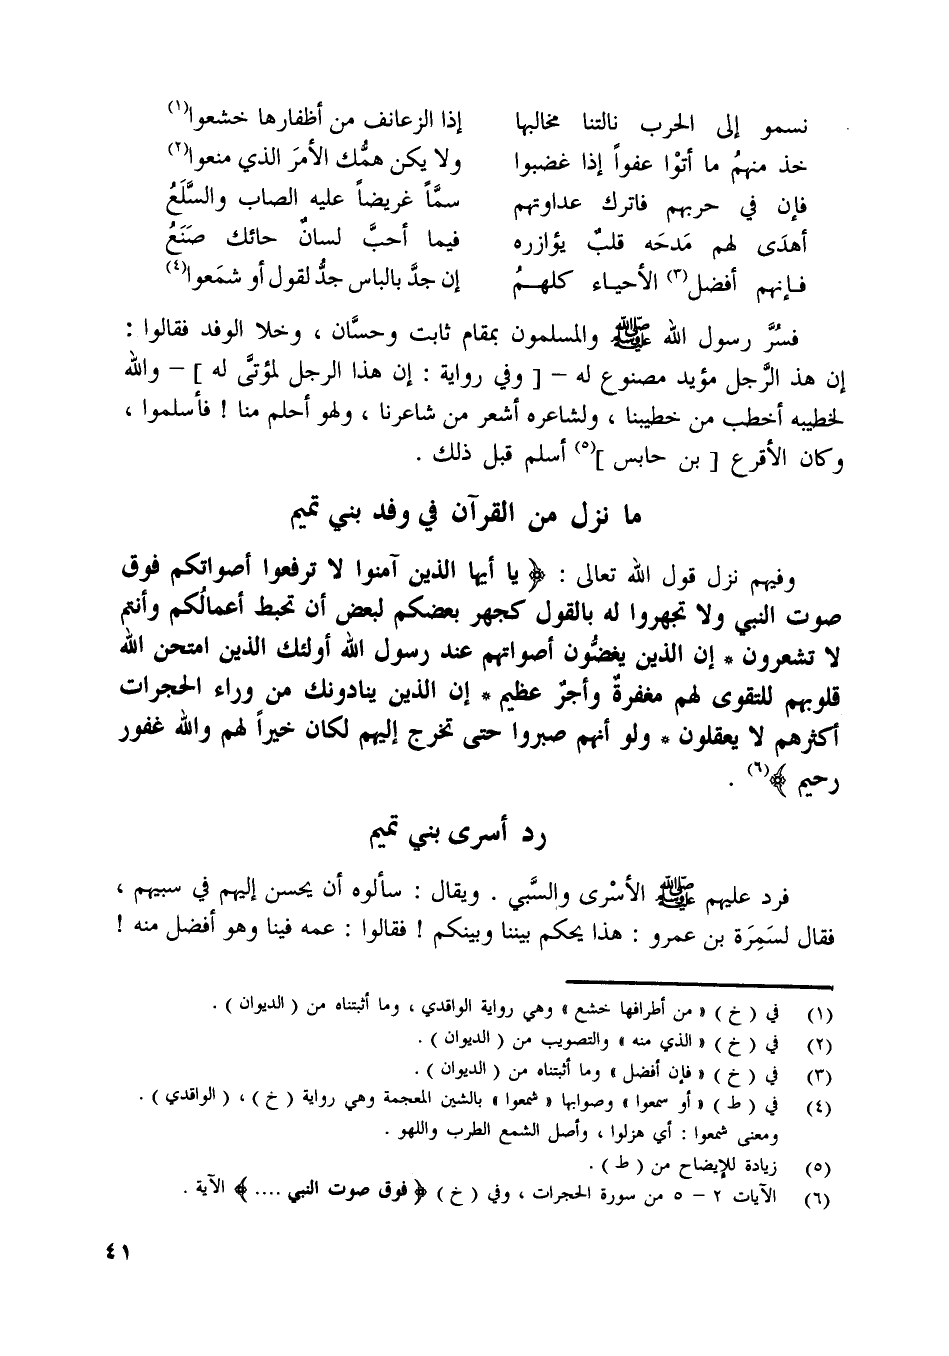 نسمو إلى الحرب نالتنا مخالبها إذا الزعانف من أظفارها خشعوا(١)
خذ منهمُ ما أتوْا عفواً إذا غضبوا ولا يكن همُّك الأمرَ الذي منعوا(٢)
فإن في حربهم فاترك عداوتهم سمَّاً غريضاً عليه الصاب والسَّلَعُ
أهدَى لهم مَدحَه قلبٌ يؤازره فيما أحبَّ لسانٌ حائك صَنَعُ
فإنهم أفضل(٣) الأحياء كلهمُ إن جدَّ بالباس جدُّ لقول أو شمَعوا(٤)
فسُرَّ رسول الله ﷺ والمسلمون بمقام ثابت وحسَّان ، وخلا الوفد فقالوا :
إن هذ الرَّجل مؤيد مصنوع له – [ وفي رواية : إن هذا الرجل لمؤتَّى له ] – والله
لخطيبه أخطب من خطيبنا ، ولشاعره أشعر من شاعرنا ، ولهو أحلم منا ! فأسلموا ،
وكان الأقرع [ بن حابس ](٥) أسلم قبل ذلك .
ما نزل من القرآن في وفد بني تميم
وفيهم نزل قول الله تعالى : ﴿ يا أيها الذين آمنوا لا ترفعوا أصواتكم فوق
صوت النبي ولا تجهروا له بالقول كجهر بعضكم لبعض أن تحبط أعمالُكم وأنتم
لا تشعرون * إن الذين يغضُّون أصواتهم عند رسول الله أولئك الذين امتحن الله
قلوبهم للتقوى لهم مغفرةٌ وأجرٌ عظيم * إن الذين ينادونك من وراء الحجرات
أكثرهم لا يعقلون * ولو أنهم صبروا حتى تخرج إليهم لكان خيراً لهم والله غفور
رحيم ﴾(٦) .
رد أسرى بني تميم
فرد عليهم ﷺ الأسْرى والسَّبي . ويقال : سألوه أن يحسن إليهم في سبيهم ،
فقال لسَمِرَة بن عمرو : هذا يحكم بيننا وبينكم ! فقالوا : عمه فينا وهو أفضل منه !
(١) في ( خ ) « من أطرافها خشع » وهي رواية الواقدي ، وما أثبتناه من ( الديوان ) .
(٢) في ( خ ) « الذي منه » والتصويب من ( الديوان ) .
(٣) في ( خ ) « فإن أفضل » وما أثبتناه من ( الديوان ) .
(٤) في ( ط ) « أو سمعوا » وصوابها « شمعوا » بالشين المعجمة وهي رواية ( خ ) ، ( الواقدي ) .
ومعنى شمعوا : أي هزلوا ، وأصل الشمع الطرب واللهو .
(٥) زيادة للإيضاح من ( ط ) .
(٦) الآيات ٢ – ٥ من سورة الحجرات ، وفي ( خ ) ﴿ فوق صوت النبي .... ﴾ الآية .
٤١